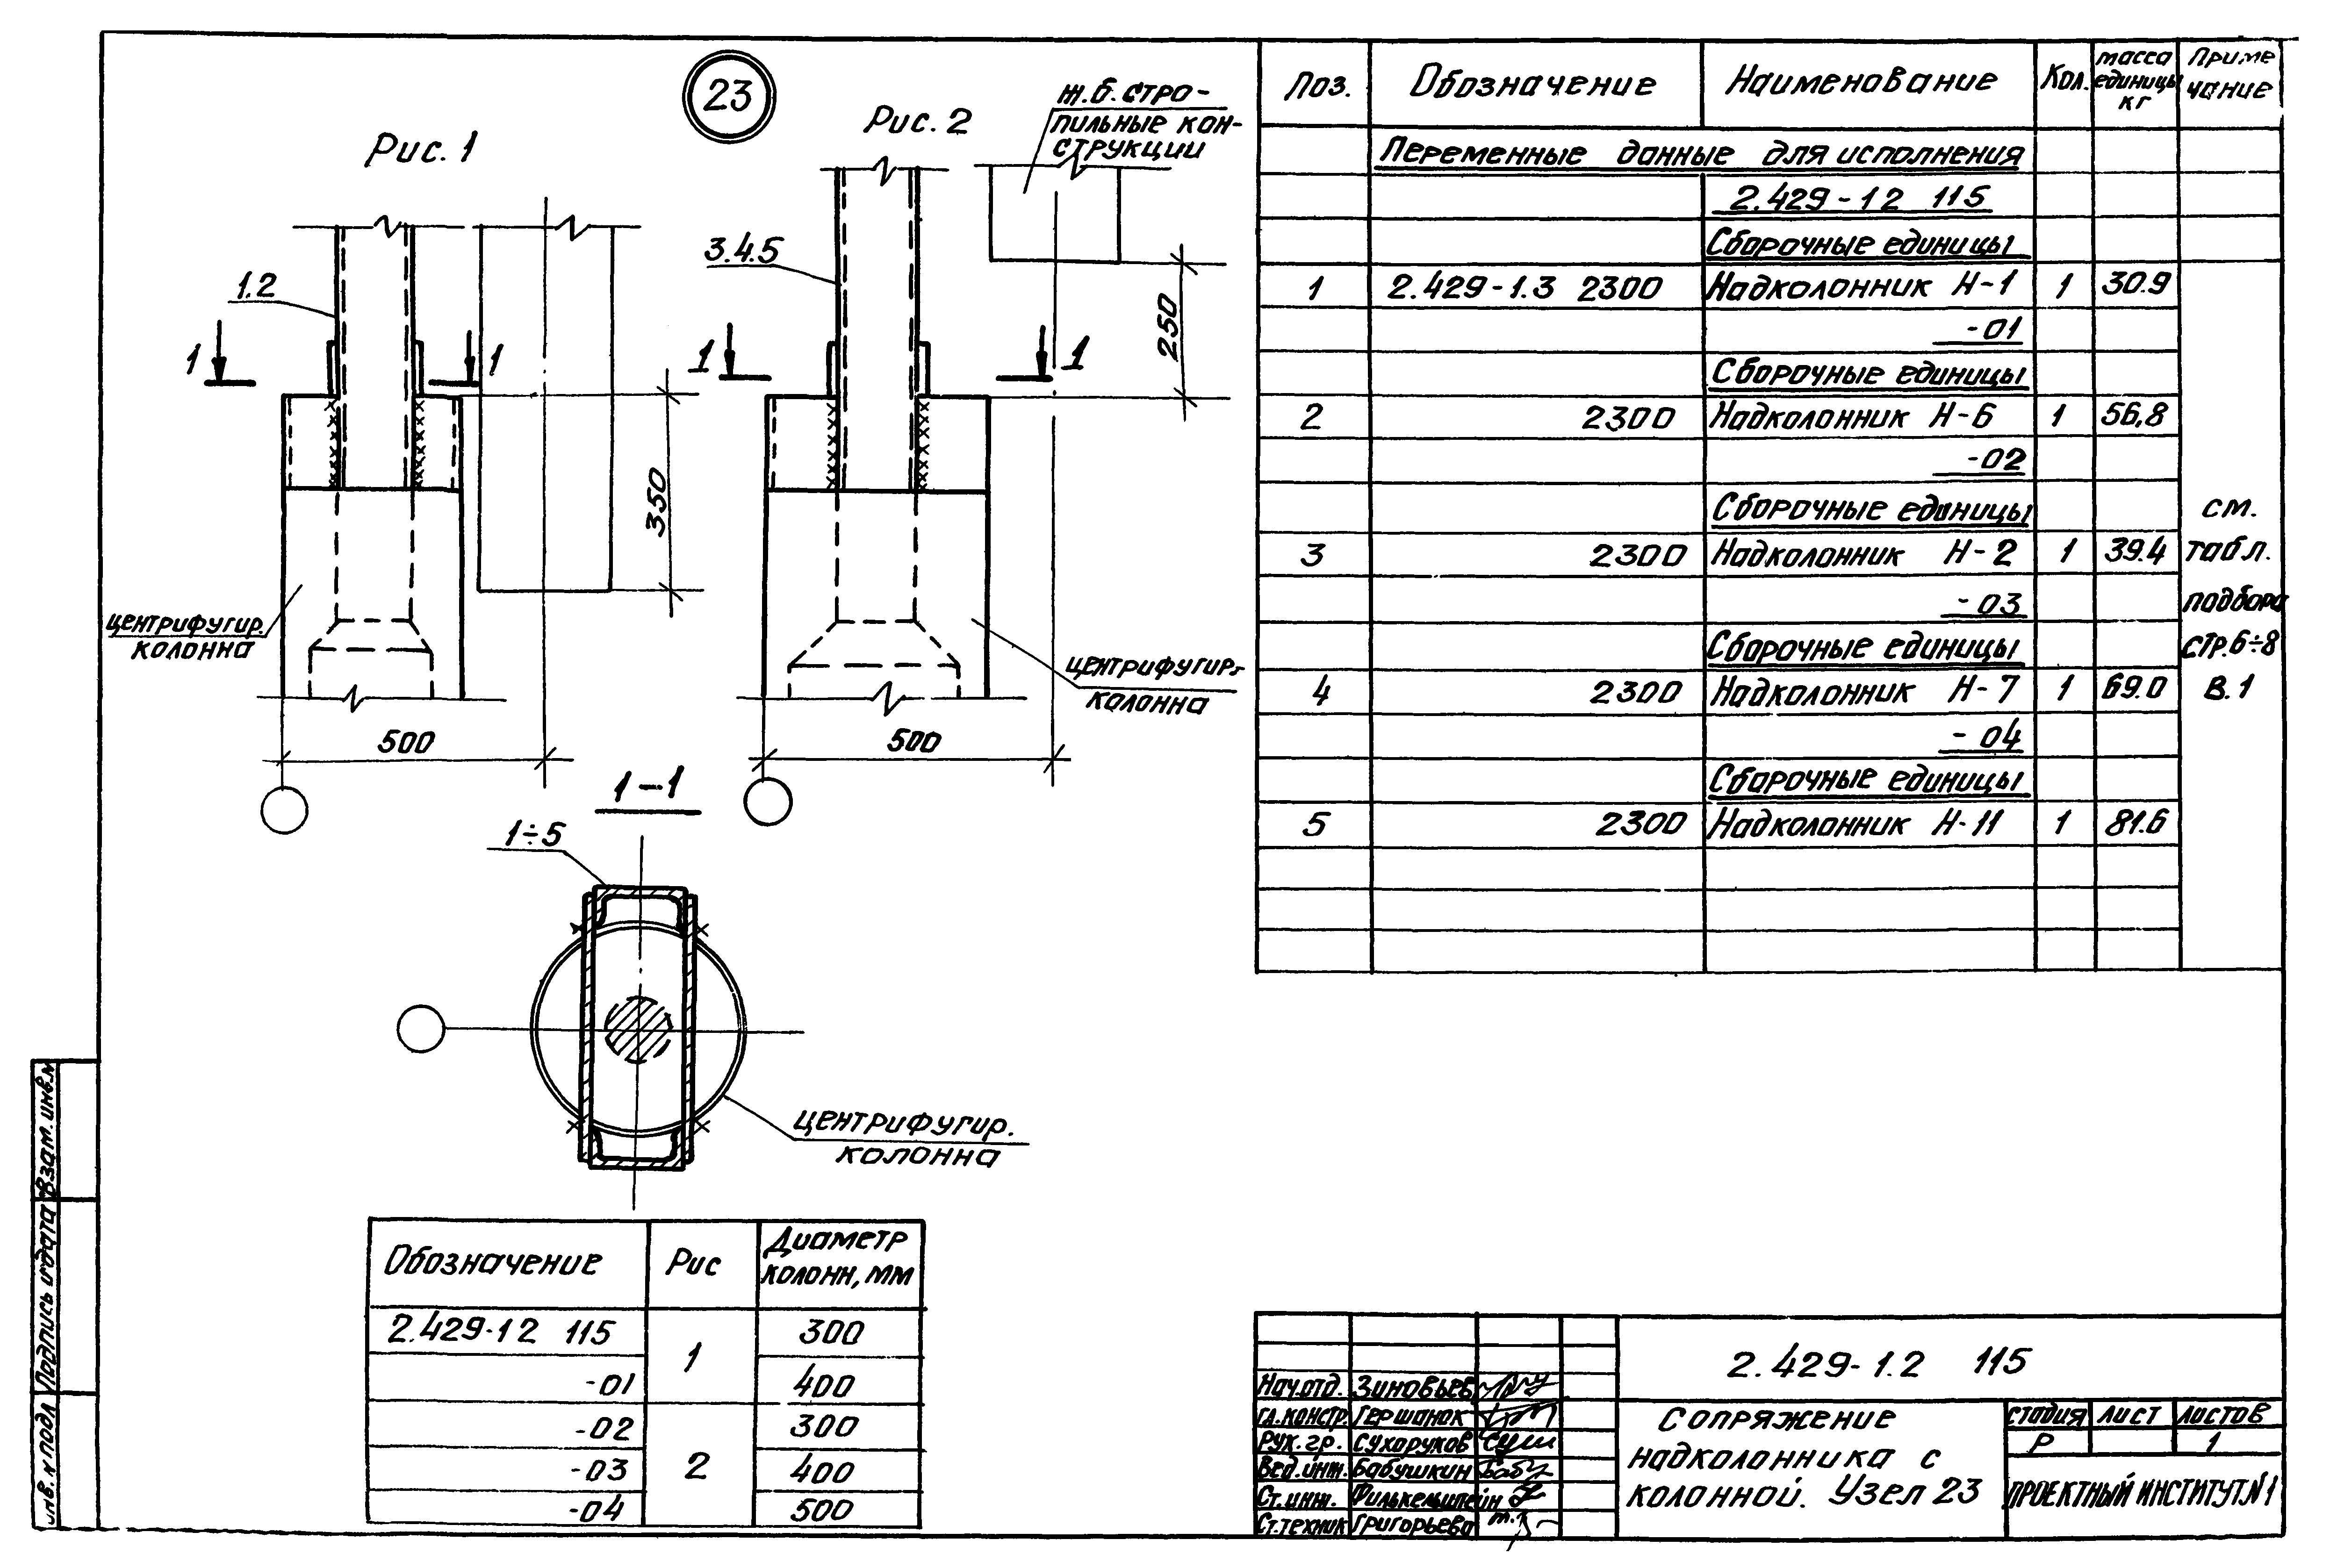 23
Рис. 1
1.2
1
1
350
центрифугир.
колонна
500
Рис. 2
ж.б. стро-
пильные кон-
струкции
3.4.5
1
1
250
центрифугир.
колонна
500
1-1
1÷5
центрифугир.
колонна
Обозначение Рис Диаметр
колонн, мм
2.429-12 115 1 300
-01 400
-02 2 300
-03 400
-04 500
Поз. Обозначение Наименование Кол. масса
единицы
кг Приме
чание
Переменные данные для исполнения
2.429-12 115
Сборочные единицы
1 2.429-1.3 2300 Надколонник Н-1 1 30.9
-01
Сборочные единицы
2 2300 Надколонник Н-6 1 56,8
-02
Сборочные единицы см.
3 2300 Надколонник Н-2 1 39.4 табл.
-03 подбора
Сборочные единицы стр.6÷8
4 2300 Надколонник Н-7 1 69.0 В.1
-04
Сборочные единицы
5 2300 Надколонник Н-11 1 81.6
Нач.отд. Зиновьев
гл.констр. Гершанок
Рук.гр. Сухоруков
Вед.инж. Бабушкин
Ст.инж. Филькельштейн
Ст.техник Григорьева
2.429-1.2 115
Сопряжение
надколонника с
колонной. Узел 23
стадия лист листов
Р 1
Проектный институт №1
Взам. инв.№
Подпись и дата
Инв. № подл